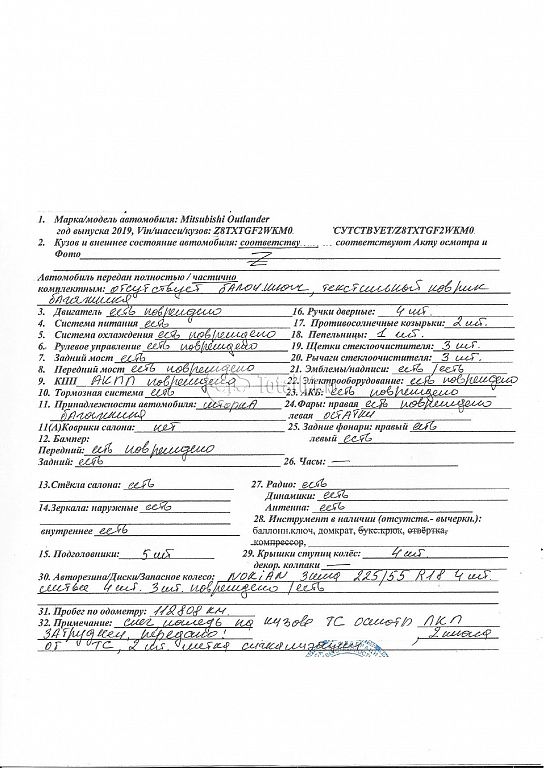 1. Марка/модель автомобиля: Mitsubishi Outlander
год выпуска 2019, Vin/шасси/кузов: Z8TXTGF2WKM0 'СУТСТВУЕТ/Z8TXTGF2WKM0
2. Кузов и внешнее состояние автомобиля: соответству соответствуют Акту осмотра и
Фото Z
Автомобиль передан полностью / частично
комплектным: отсутствует балон.ключ, текстильный коврик
багажника
3. Двигатель есть повреждено 16. Ручки дверные: 4 шт.
4. Система питания есть 17. Противосолнечные козырьки: 2 шт.
5. Система охлаждения есть повреждено 18. Пепельницы: 1 шт.
6. Рулевое управление есть повреждено 19. Щетки стеклоочистителя: 3 шт.
7. Задний мост есть 20. Рычаги стеклоочистителя: 3 шт.
8. Передний мост есть повреждено 21. Эмблемы/надписи: есть /есть
9. КПП АКПП повреждена 22. Электрооборудование: есть повреждено
10. Тормозная система есть 23. АКБ: есть повреждено
11. Принадлежности автомобиля: шторка 24. Фары: правая есть повреждено
багажника левая остатки
11(А)Коврики салона: нет 25. Задние фонари: правый есть
12. Бампер: левый есть
Передний: есть повреждено
Задний: есть 26. Часы: —
13.Стёкла салона: есть 27. Радио: есть
Динамики: есть
14.Зеркала: наружные есть Антенна: есть
28. Инструмент в наличии (отсутств.- вычеркн.):
внутреннее есть баллонн.ключ, домкрат, букс.крюк, отвёртка,
компрессор,
15. Подголовники: 5 шт 29. Крышки ступиц колёс: 4 шт.
декор. колпаки —
30. Авторезина/Диски/Запасное колесо: NOKIAN зима 225/55 R18 4 шт.
литые 4 шт. 3 шт. повреждено /есть
31. Пробег по одометру: 112808 км.
32. Примечание: снег наледь на кузове ТС осмотр ЛКП
затруднен, передано: 2 ключа
от ТС, 2 шт. метка сигнализации